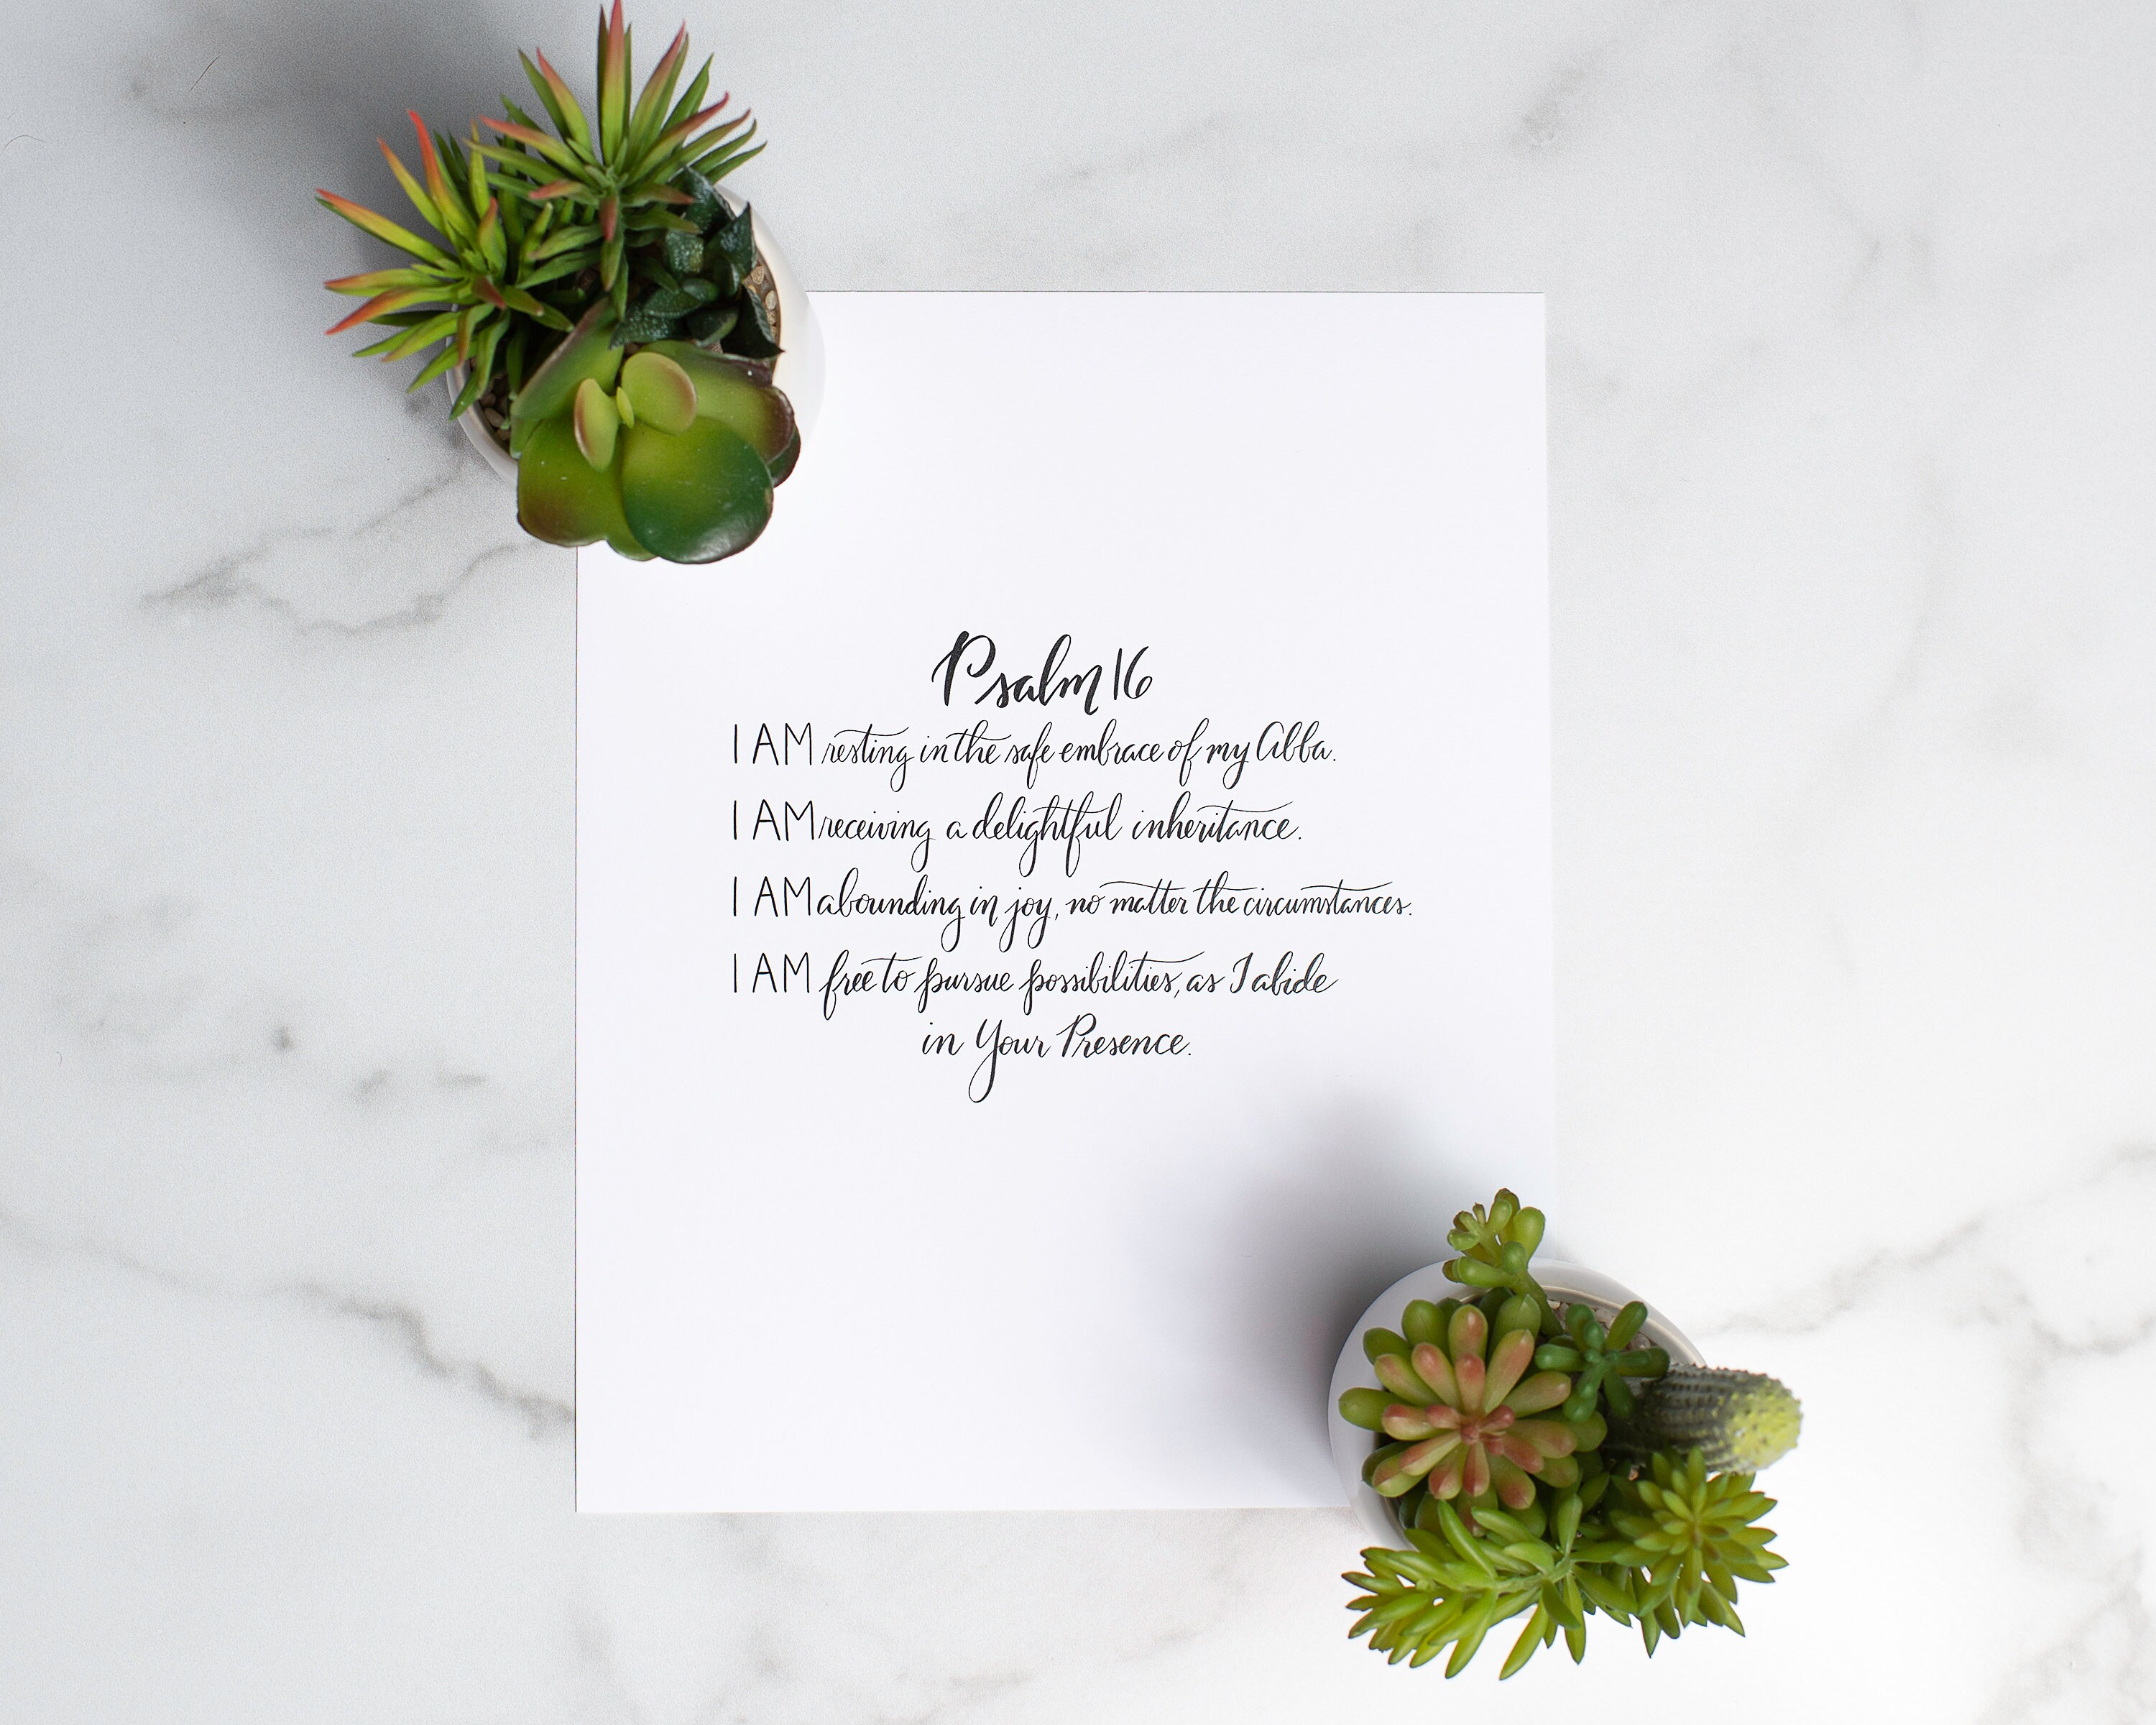 Psalm 16
I AM resting in the safe embrace of my Abba.
I AM receiving a delightful inheritance.
I AM abounding in joy, no matter the circumstances.
I AM free to pursue possibilities, as I abide
in Your Presence.